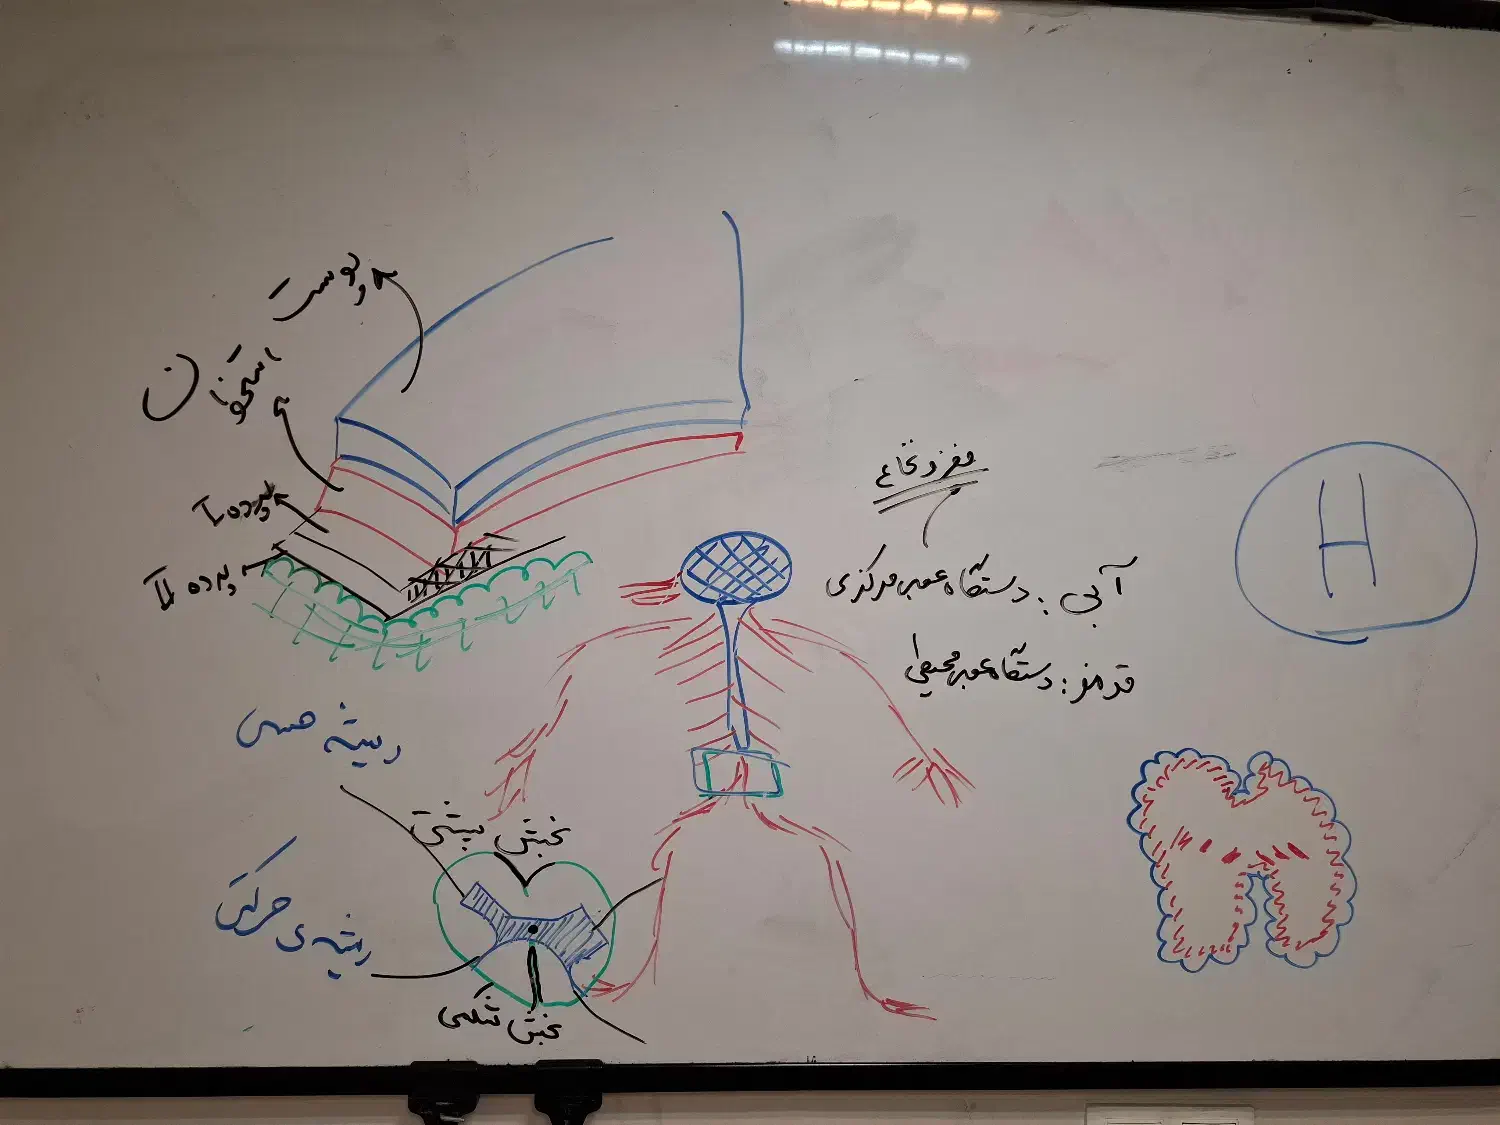 پوست
استخوان
پرده ۱
پرده ۲
مغز و نخاع
آبی: دستگاه عصبی مرکزی
قرمز: دستگاه عصبی محیطی
H
ریشه حسی
بخش پشتی
ریشه‌ی حرکتی
بخش شکمی